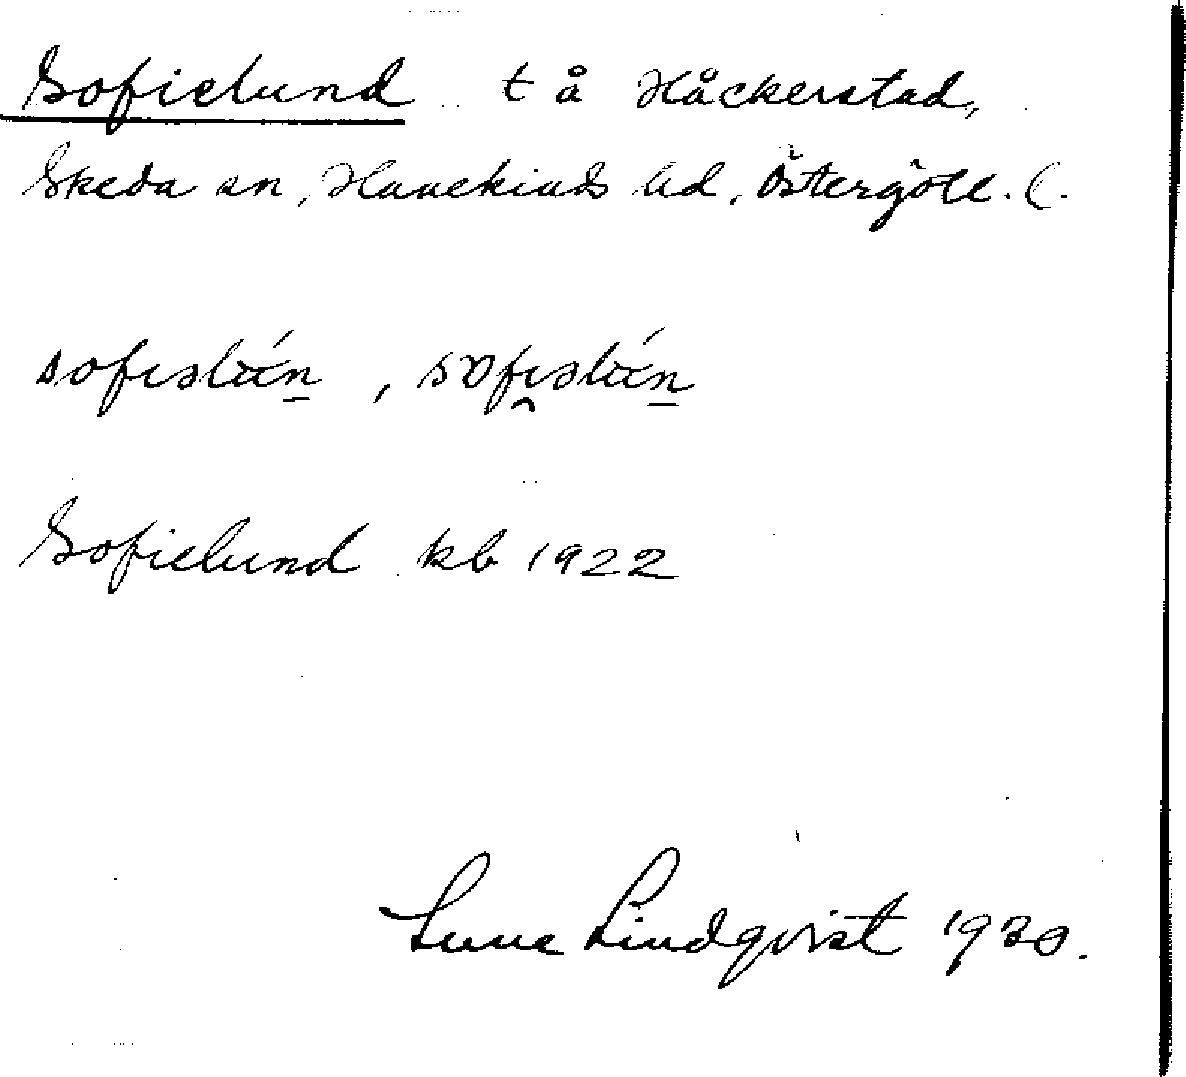 Sofielund t å Håckerstad,
Skeda sn, Hanekinds hd, Östergötl. l.
Sofielund kb 1922
Sune Lindqvist 1930.